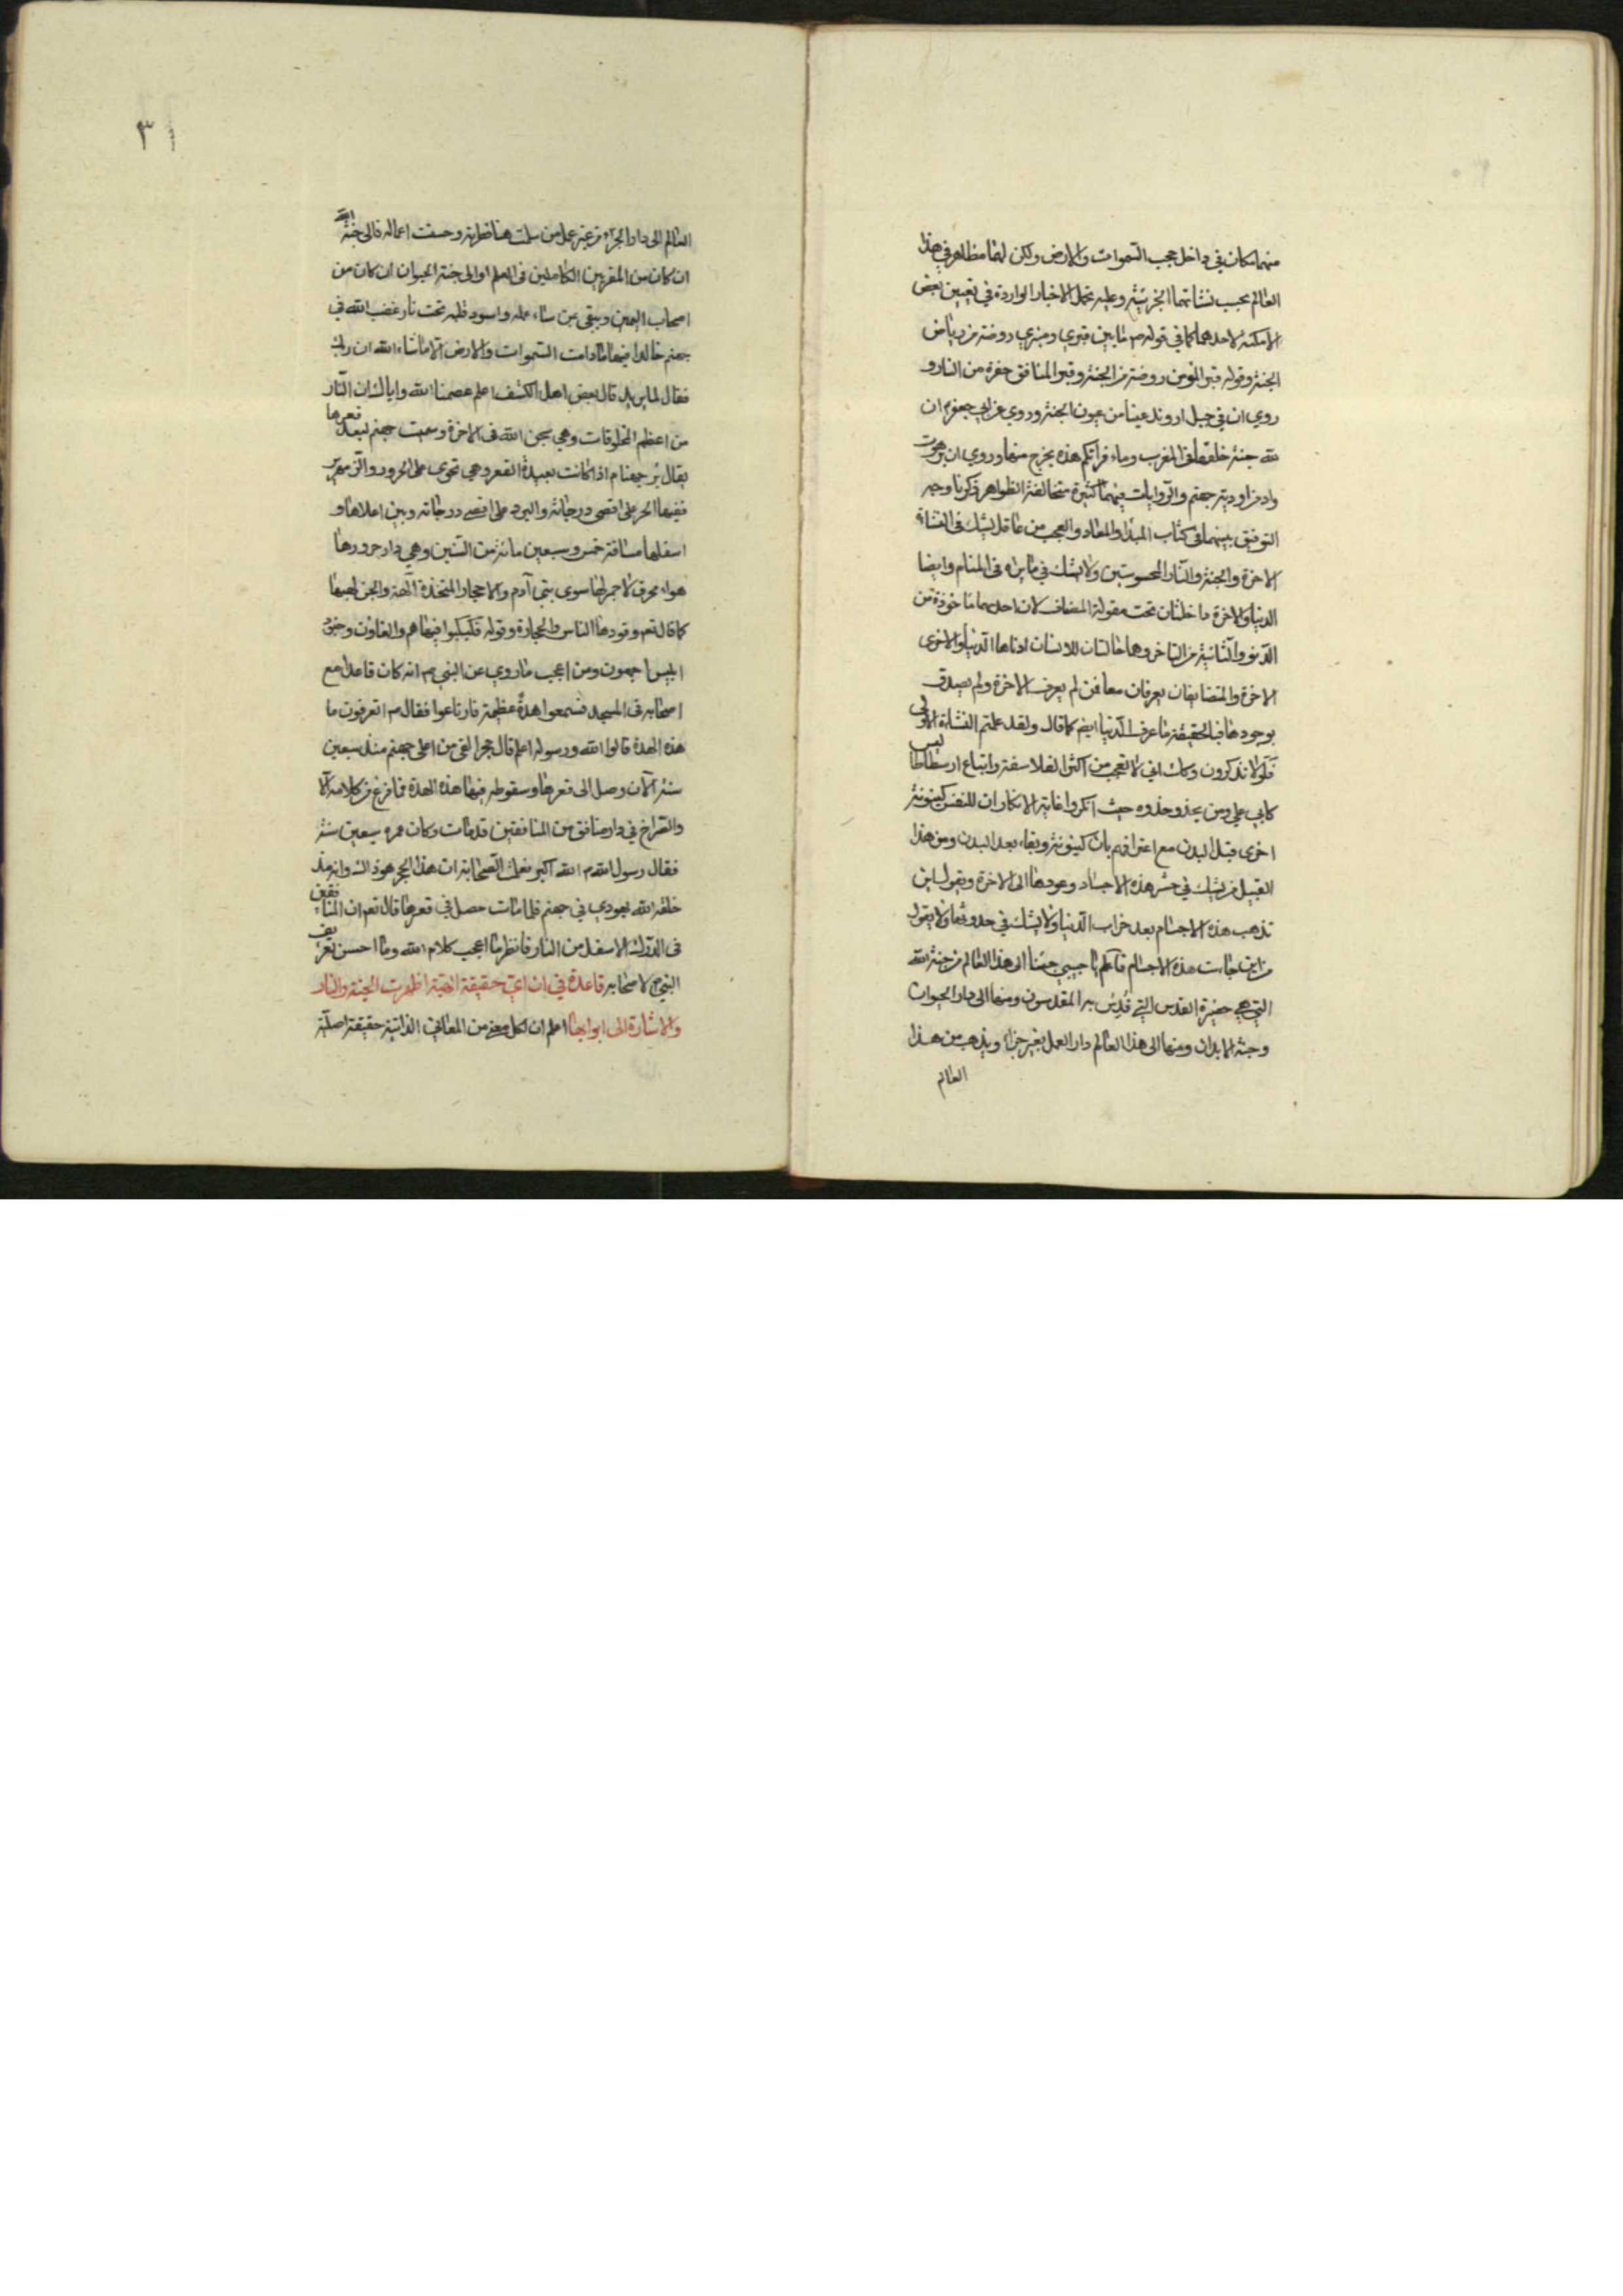 منهما مكان في داخل حجب السموات والارض ولكن لهما مظاهر في هذا
العالم بحسب نشاتهما الجزئية وعليه تحمل الاخبار الواردة في تعيين بعض
الامكنة لاحدهما كما في قوله ص ما بين قبري ومنبري روضة من رياض
الجنة وقوله قبر المؤمن روضة من الجنة وقبر المنافق حفرة من النار و
روي ان في جبل اروند عينا من عيون الجنة وروي عن ابي جعفر ع ان
لله جنة خلقها في المغرب وماء فراتكم هذه يخرج منها وروي ان برهوت
واد من اودية جهنم والروايات فيهما كثيرة متخالفة الظواهر ذكرنا وجه
التوفيق بينهما في كتاب المبدا والمعاد والعجب من عاقل يشك في النشاة
الاخرة والجنة والنار المحسوستين ولا يشك في ما يراه في المنام وايضا
الدنيا والاخرة داخلتان تحت مقولة المضاف لان احدهما ماخوذة من
الدنو والثانية من التاخر وهما حالتان للانسان ادناها الدنيا والاخرى
الاخرة والمتضايفان يعرفان معا فمن لم يعرف الاخرة ولم يصدق
بوجودها فبالحقيقة ما عرف الدنيا ايضم كما قال ولقد علمتم النشاة الاولى
فلولا تذكرون وكان اني لا تعجب من اكثر الفلاسفة واتباع ارسطاطاليس
كابي علي ومن يحذو حذوه حيث انكروا غاية الانكار ان للنفس كينونة
اخرى قبل البدن مع اعترافهم بان كينونة وبقاء بعد البدن ومن هذا
القبيل من يشك في حشر هذه الاجساد وعودها الى الاخرة ويقول اين
تذهب هذه الاجسام بعد خراب الدنيا ولا يشك في حدوثها ولا يقول
من اين جاءت هذه الاجسام فاعلم يا حبيبي جئنا الى هذا العالم من جنة الله
التي هي حضيرة القدس التي قدس به المقدسون ومنها الى دار الحيوان
وجنة الابدان ومنها الى هذا العالم دار العمل بغير جزاء ويذهب من هذا
العالم
٣١
العالم الى دار الجزاء من غير عمل من سلمت هنا فطرته وحسنت اعماله فالى جنة الله
ان كان من المقربين الكاملين في العلم او الى جنة الحيوان ان كان من
اصحاب اليمين ويبقى من ساء عمله واسود قلبه تحت نار غضب الله في
جهنم خالدا فيها ما دامت السموات والارض الا ما شاء الله ان ربك
فعال لما يريد قال بعض اهل الكشف اعلم عصمنا الله واياك ان النار
من اعظم المخلوقات وهي سجن الله في الاخرة وسميت جهنم لبعد قعرها
يقال بئر جهنام اذا كانت بعيدة القعر وهي تحوى على الحرور والزمهرير
ففيها الحر على اقصى درجاته والبرد على اقصى درجاته وبين اعلاها و
اسفلها مسافة خمس وسبعين مائة من السنين وهي دار حرورها
هواء محرق لا جمر لها سوى بني آدم والاحجار المتخذة الهة والجن لهبها
كما قال تع وقودها الناس والحجارة وقوله فكبكبوا فيها هم والغاون وجنود
ابليس اجمعون ومن اعجب ما روي عن النبي ص انه كان قاعدا مع
اصحابه في المسجد فسمعوا هدة عظيمة فارتاعوا فقال ص اتعرفون ما
هذه الهدة قالوا الله ورسوله اعلم قال حجر القي من اعلى جهنم منذ سبعين
سنة الآن وصل الى قعرها وسقوطه فيها هذه الهدة فما فرغ من كلامه الا
والصراخ في دار منافق من المنافقين قد مات وكان عمره سبعين سنة
فقال رسول الله ص الله اكبر فعلمت الصحابة ان هذا الحجر هو ذاك وانه منذ
خلقه الله يهودي في جهنم فلما مات حصل في قعرها قال تع ان المنافقين
في الدرك الاسفل من النار فانظر ما اعجب كلام الله وما احسن تعريف
النبي ص لاصحابه قاعدة في ان اي حقيقة الهية اظهرت الجنة والنار
والاشارة الى ابوابها اعلم ان لكل معنى من المعاني الذاتية حقيقة اصلية